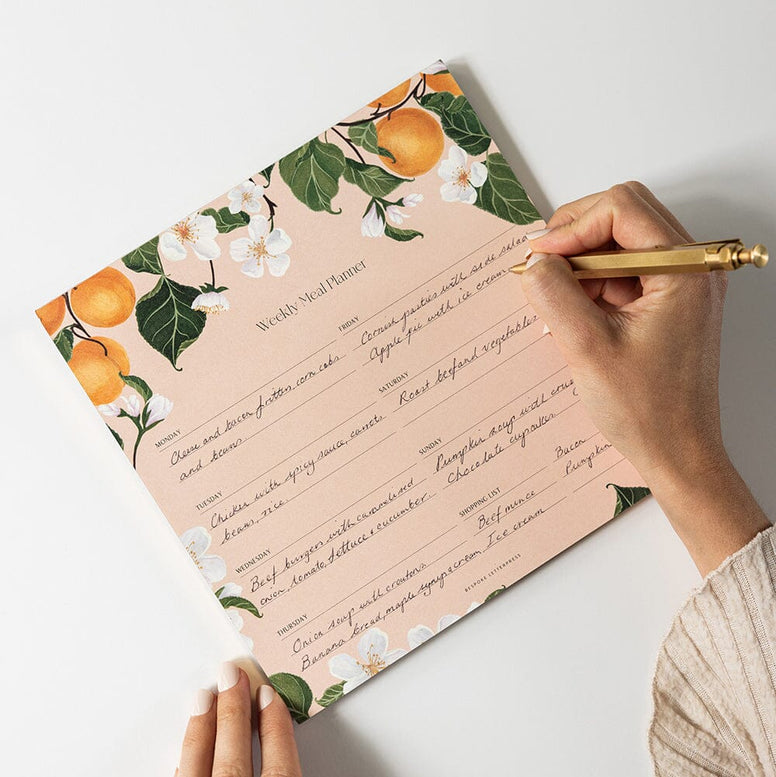 Weekly Meal Planner
MONDAY
Cheese and bacon fritters corn cobs
and beans
TUESDAY
Chicken with spicy sauce, carrots
beans, rice
WEDNESDAY
Beef burgers with caramelised
onion, tomato, lettuce & cucumber
THURSDAY
Onion soup with croutons
Banana bread, maple syrup & cream
FRIDAY
Cornish pasties with side salad
Apple pie with ice cream
SATURDAY
Roast beef and vegetables
SUNDAY
Pumpkin soup with
Chocolate cupcakes
SHOPPING LIST
Beef mince
Ice cream
Bacon
Pumpkin
BESPOKE LETTERPRESS